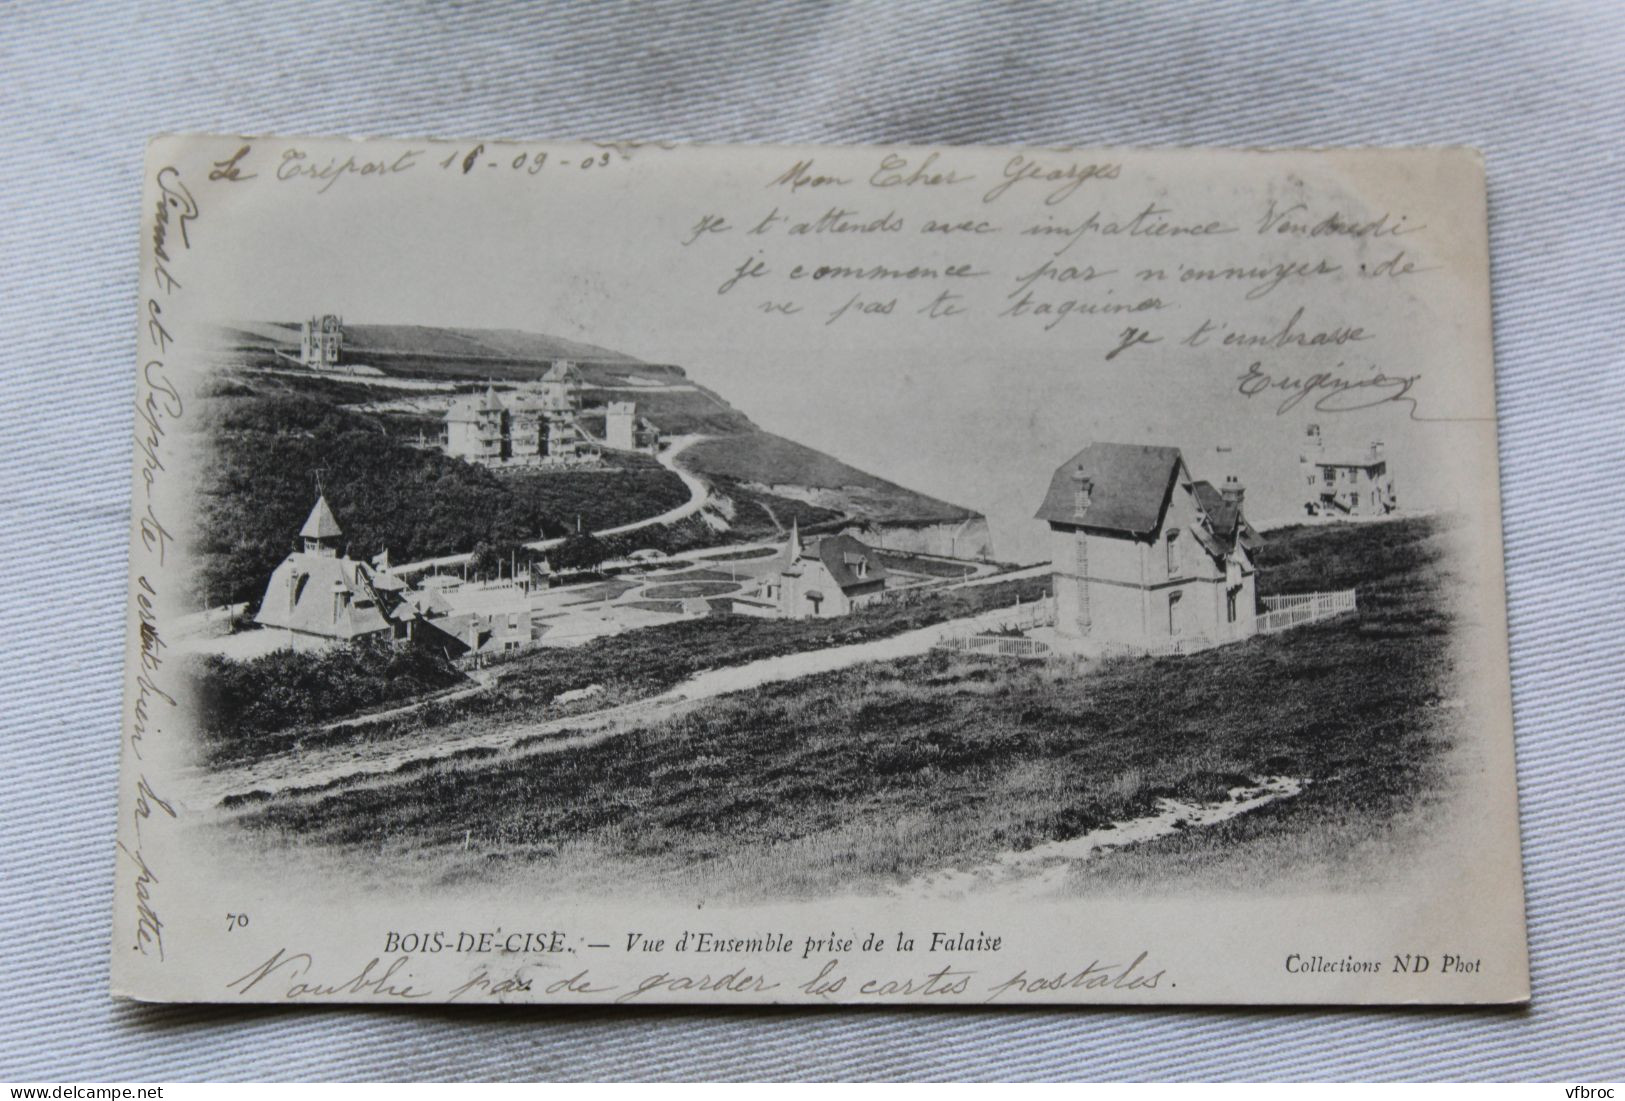 Le Tréport 16-09-03
Mon Cher Georges
je t'attends avec impatience Vendredi
je commence par m'onnuyer de
ne pas te taquiner
Je t'embrasse
Eugénie
Faust et Pipo te serrent bien la patte.
70
BOIS-DE-CISE. — Vue d'Ensemble prise de la Falaise
Collections ND Phot
N'oublie pas de garder les cartes postales.
vfbroc